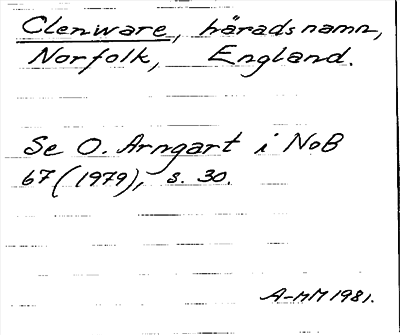 Clenware, häradsnamn,
Norfolk, England.
Se O. Arngart i NoB
67 (1979), s. 30.
A-MM 1981.